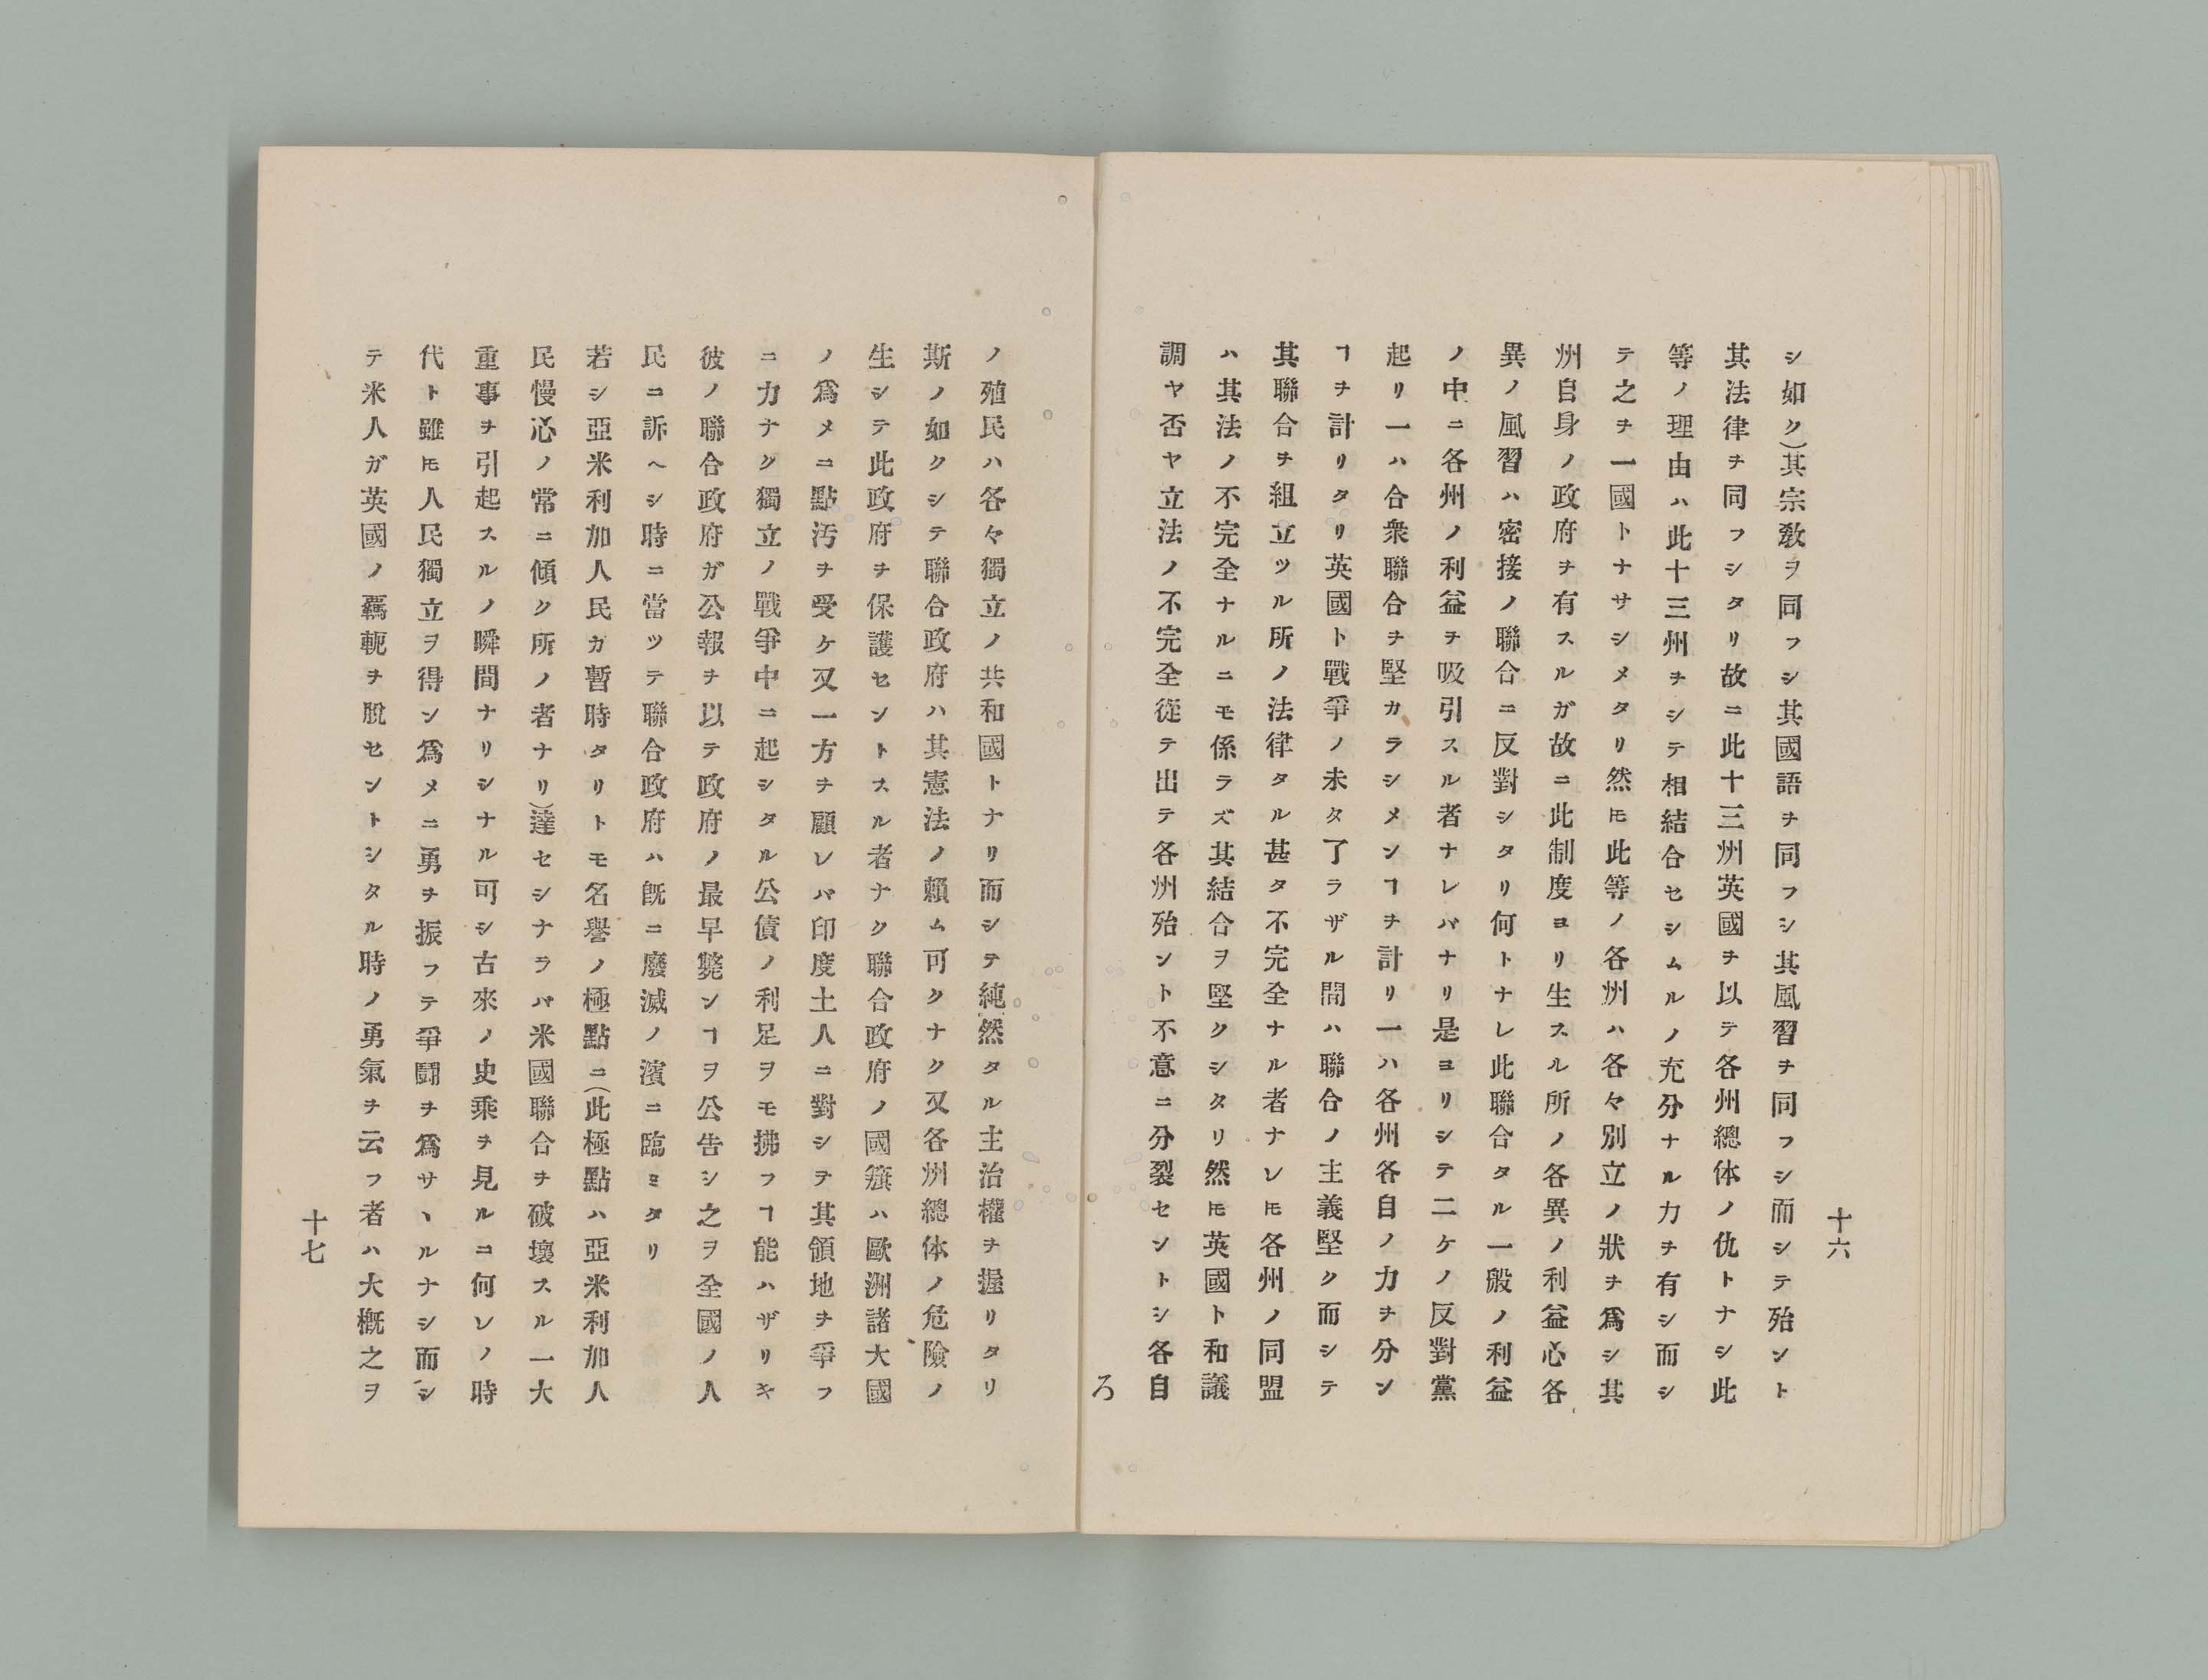 十六
シ如ク)其宗教ヲ同フシ其國語ヲ同フシ其風習ヲ同フシ而シテ殆ント
其法律ヲ同フシタリ故ニ此十三州英國ヲ以テ各州總体ノ仇トナシ此
等ノ理由ハ此十三州ヲシテ相結合セシムルノ充分ナル力ヲ有シ而シ
テ之ヲ一國トナサシメタリ然ﾄﾓ此等ノ各州ハ各々別立ノ狀ヲ爲シ其
州自身ノ政府ヲ有スルガ故ニ此制度ヨリ生スル所ノ各異ノ利益心各
異ノ風習ハ密接ノ聯合ニ反對シタリ何トナレ此聯合タル一般ノ利益
ノ中ニ各州ノ利益ヲ吸引スル者ナレバナリ是ヨリシテ二ケノ反對黨
起リ一ハ合衆聯合ヲ堅カラシメンヿヲ計リ一ハ各州各自ノ力ヲ分ン
ヿヲ計リタリ英國ト戰爭ノ未タ了ラザル間ハ聯合ノ主義堅ク而シテ
其聯合ヲ組立ツル所ノ法律タル甚タ不完全ナル者ナレﾄﾓ各州ノ同盟
ハ其法ノ不完全ナルニモ係ラズ其結合ヲ堅クシタリ然ﾄﾓ英國ト和議
調ヤ否ヤ立法ノ不完全従テ出テ各州殆ント不意ニ分裂セントシ各自
ろ
ノ殖民ハ各々獨立ノ共和國トナリ而シテ純然タル主治權ヲ握リタリ
斯ノ如クシテ聯合政府ハ其憲法ノ賴ム可クナク又各州總体ノ危險ノ
生シテ此政府ヲ保護セントスル者ナク聯合政府ノ國籏ハ歐洲諸大國
ノ爲メニ點汚ヲ受ケ又一方ヲ顧レバ印度土人ニ對シヲ其領地ヲ爭フ
ニ力ナク獨立ノ戰爭中ニ起シタル公債ノ利足ヲモ拂フヿ能ハザリキ
彼ノ聯合政府ガ公報ヲ以テ政府ノ最早斃ンヿヲ公告シ之ヲ全國ノ人
民ニ訴ヘシ時ニ當ツテ聯合政府ハ旣ニ廢滅ノ濱ニ臨ミタリ
若シ亞米利加人民カ暫時タリトモ名譽ノ極點ニ(此極點ハ亞米利加人
民慢心ノ常ニ傾ク所ノ者ナリ)達セシナラバ米國聯合ヲ破壞スル一大
重事ヲ引起スルノ瞬間ナリシナル可シ古來ノ史乘ヲ見ルニ何レノ時
代ト雖ﾄﾓ人民獨立ヲ得ン爲メニ勇ヲ振フテ爭鬪ヲ爲サヽルナシ而シ
テ米人ガ英國ノ羈軛ヲ脫セントシタル時ノ勇氣ヲ云フ者ハ大概之ヲ
十七